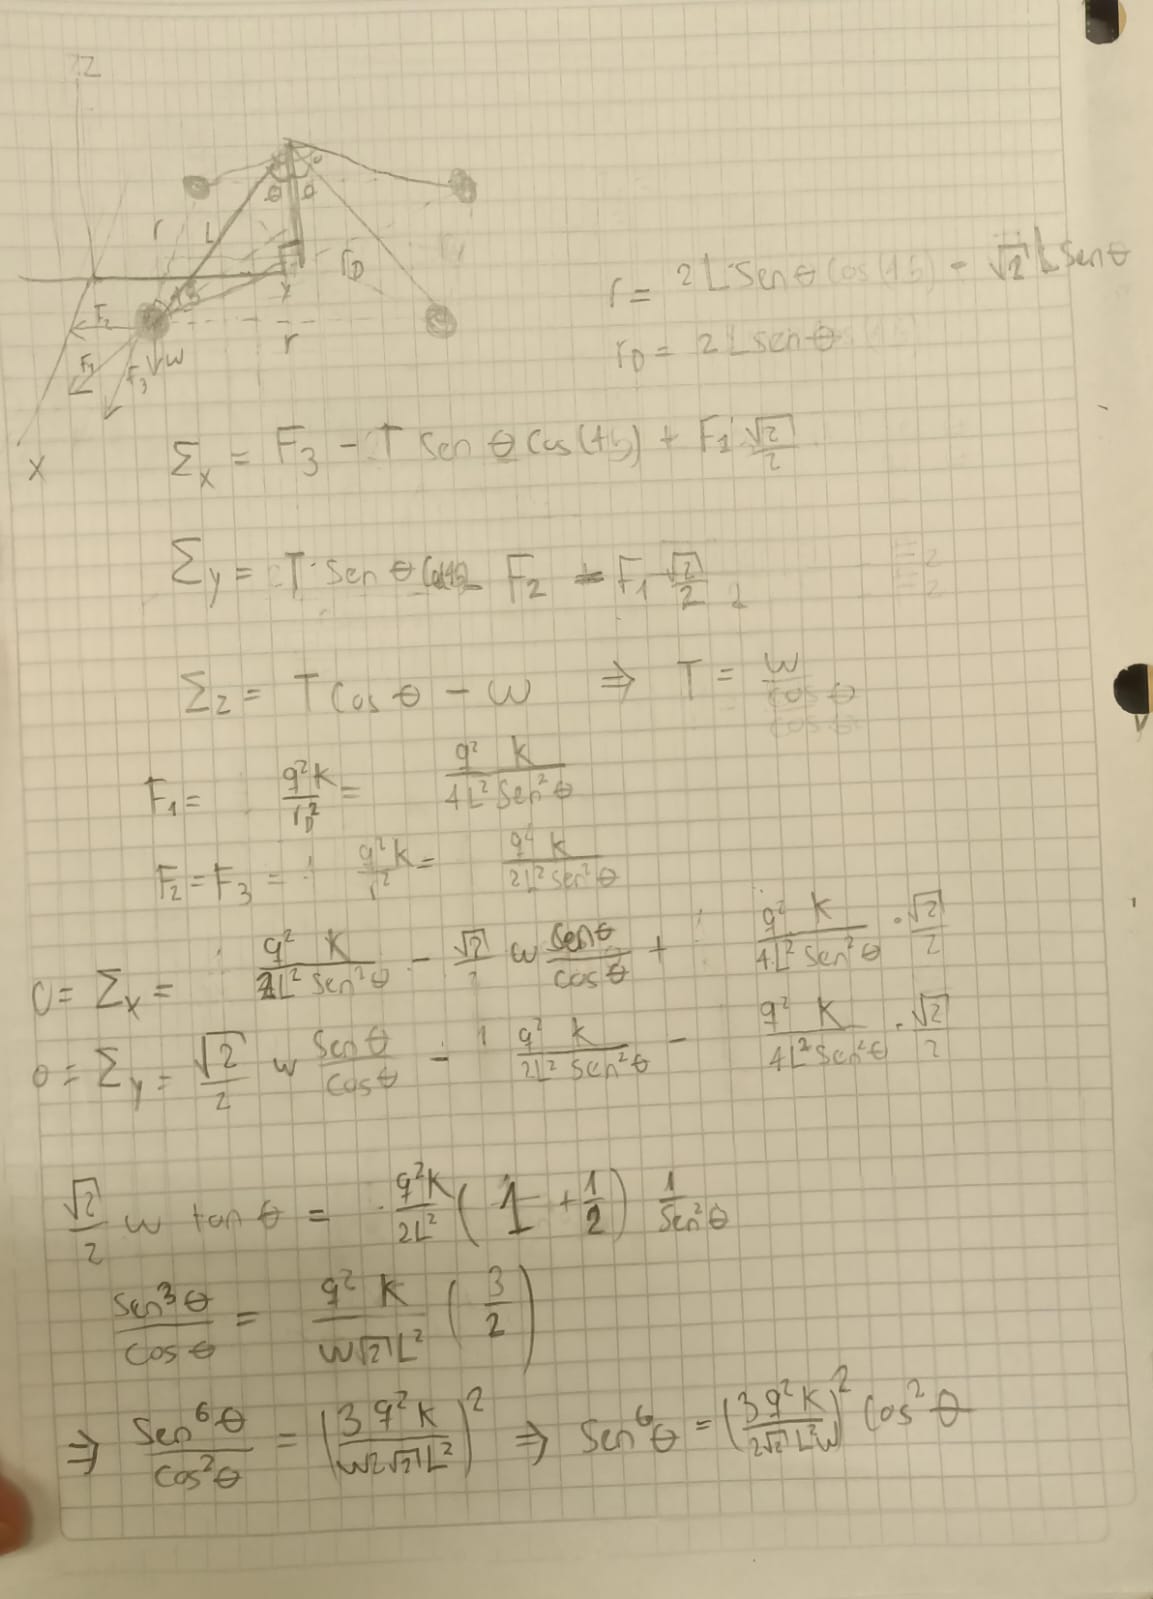 Z
θ θ
r L r_D
45
F₂ r
F₁ F₃ w
X
r = 2 L Sen θ Cos(45) = √2 L Sen θ
r_D = 2 L sen θ
Σx = F₃ - T Sen θ Cos(45) + F₁ √2/2
Σy = T · Sen θ Cos45 - F₂ - F₁ √2/2
Σz = T Cos θ - w ⇒ T = w/cos θ
F₁ = q²k/r_D² = q² k/4L² Sen² θ
F₂ = F₃ = q²k/r² = q² k/2L² sen² θ
0 = Σx = q² k/2L² Sen² θ - √2/2 w senθ/cosθ + q² k/4L² Sen² θ · √2/2
0 = Σy = √2/2 w Sen θ/cos θ - q² k/2L² Sen² θ - q² k/4L² Sen² θ · √2/2
√2/2 w tan θ = q²k/2L² (1 + 1/2) 1/Sen² θ
sen³ θ/cos θ = q² k/w√2 L² (3/2)
⇒ Sen⁶ θ/cos² θ = (3 q² k/w2√2 L²)² ⇒ Sen⁶ θ = (3 q² k/2√2 L² w)² Cos² θ